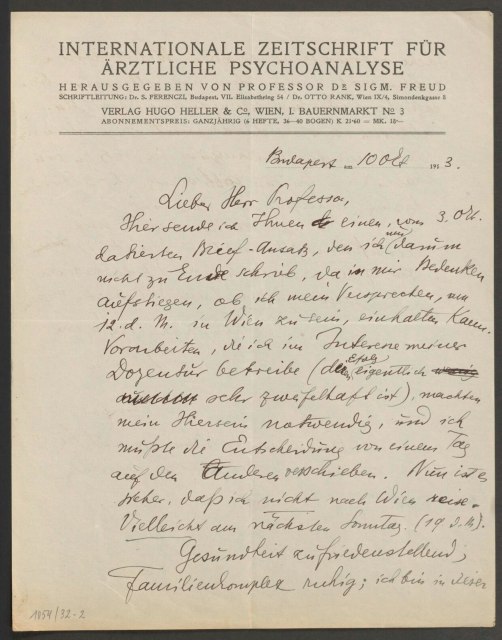 INTERNATIONALE ZEITSCHRIFT FÜR
ÄRZTLICHE PSYCHOANALYSE
HERAUSGEGEBEN VON PROFESSOR DR SIGM. FREUD
SCHRIFTLEITUNG: Dr. S. FERENCZI, Budapest, VII. Elisabethring 54 / Dr. OTTO RANK, Wien IX/4, Simondenkgasse 8
VERLAG HUGO HELLER & Co, WIEN, I. BAUERNMARKT No 3
ABONNEMENTSPREIS: GANZJÄHRIG (6 HEFTE, 36—40 BOGEN) K 21·60 = MK. 18·—
Budapest am 10 Okt 1913.
Lieber Herr Professor,
Hier sende ich Ihnen einen, vom 3. Okt.
datierten Brief-Ansatz, den ich nur darum
nicht zu Ende schrieb, da in mir Bedenken
aufstiegen, ob ich mein Versprechen, am
12. d. M. in Wien zu sein, einhalten kann.
Vorarbeiten, die ich im Interesse meiner
Dozentur betreibe (deren Erfolg eigentlich
sehr zweifelhaft ist), machten
mein Hiersein notwendig, und ich
mußte die Entscheidung von einem Tag
auf den Anderen verschieben. Nun ist es
sicher, daß ich nicht nach Wien reise.
Vielleicht am nächsten Sonntag. (19 d. M.).
Gesundheit zufriedenstellend;
Familienkomplex ruhig; ich bin in dieser
1054/32-2